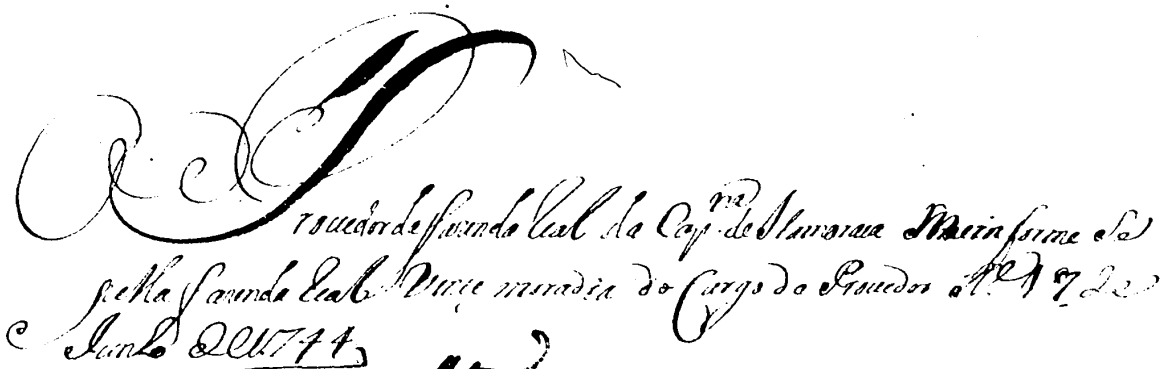 Prouedor da fazenda Real da Cap.nia de Itamaraca Me informe Se
pella fazenda Real Vence moradia do Cargo do Prouedor R.e 17 de
Junho de 1744